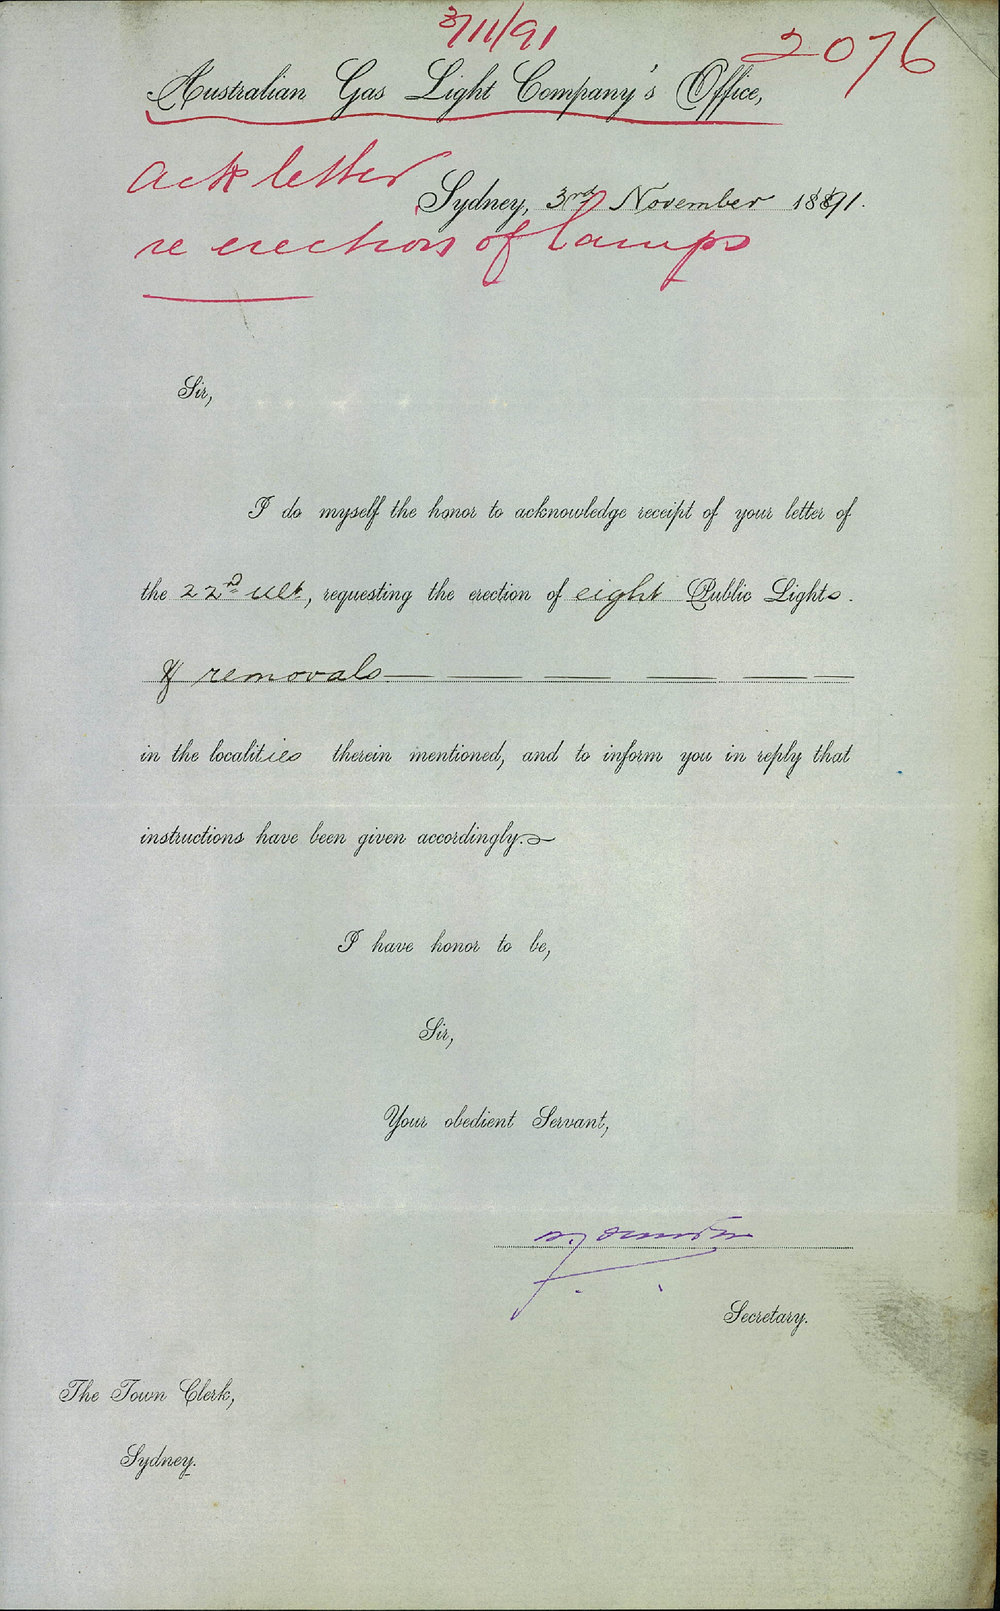 3/11/91
2076
Australian Gas Light Company's Office,
Ack letter
Sydney, 3rd November 1891.
re erection of lamps
Sir,
I do myself the honor to acknowledge receipt of your letter of
the 22nd ult, requesting the erection of eight Public Lights.
& removals
in the localities therein mentioned, and to inform you in reply that
instructions have been given accordingly.
I have honor to be,
Sir,
Your obedient Servant,
Secretary.
The Town Clerk,
Sydney.